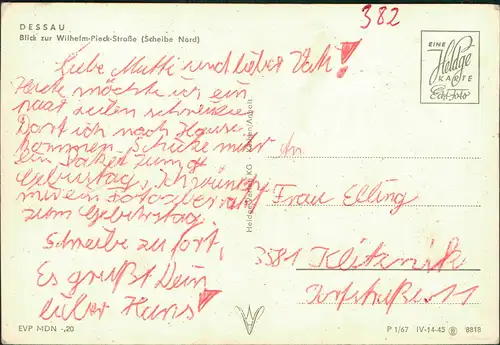 DESSAU
Blick zur Wilhelm-Pieck-Straße (Scheibe Nord)
382
EINE
Heldge
KARTE
Echt Foto
Liebe Mutti und lieber Vati!
Heute möchte ich ein
paar zeilen schreiben
Dort ich nach Hause
kommen Schicke mir
ein Paket zum
Geburtstag, Ich wünsch
mir ein Fotoaperat
zum Geburtstag.
Schreibe zu fort,
Es grüßt Dein
lieber Hans
An
Frau Elling
3581 Klitznik
Dorfstraße 11
Heldge-Verlag KG Köthen/Anhalt
EVP MDN -,20
P 1/67 IV-14-45 8818